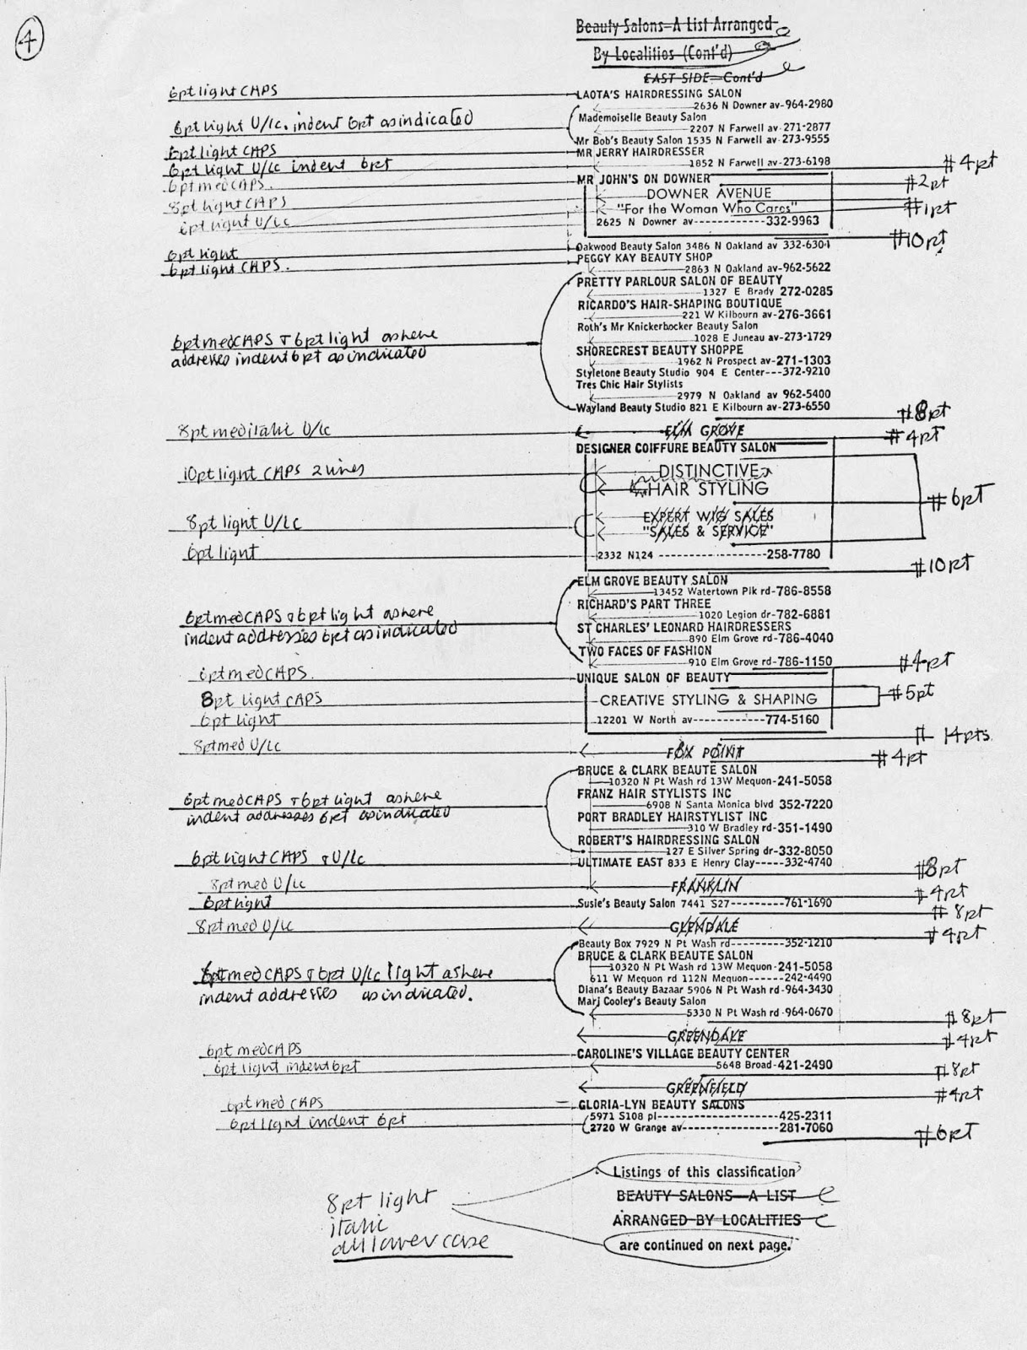 4
Beauty Salons-A List Arranged
By Localities (Cont'd)
EAST SIDE-Cont'd
6pt light CAPS
LAOTA'S HAIRDRESSING SALON
2636 N Downer av-964-2980
6pt light U/lc. indent 6pt as indicated
Mademoiselle Beauty Salon
2207 N Farwell av-271-2877
Mr Bob's Beauty Salon 1535 N Farwell av-273-9555
6pt light CAPS
MR JERRY HAIRDRESSER
6pt light U/lc indent 6pt
1852 N Farwell av-273-6198
#4pt
6pt med CAPS.
MR JOHN'S ON DOWNER
#2pt
8pt light CAPS
DOWNER AVENUE
"For the Woman Who Cares"
#1pt
6pt light U/lc
2625 N Downer av-------332-9963
#10pt
6pt light
Oakwood Beauty Salon 3486 N Oakland av 332-6304
6pt light CAPS.
PEGGY KAY BEAUTY SHOP
2863 N Oakland av-962-5622
PRETTY PARLOUR SALON OF BEAUTY
1327 E Brady 272-0285
RICARDO'S HAIR-SHAPING BOUTIQUE
221 W Kilbourn av-276-3661
Roth's Mr Knickerbocker Beauty Salon
6pt med CAPS + 6pt light as here
1028 E Juneau av-273-1729
addresses indent 6pt as indicated
SHORECREST BEAUTY SHOPPE
1962 N Prospect av-271-1303
Styletone Beauty Studio 904 E Center---372-9210
Tres Chic Hair Stylists
2979 N Oakland av 962-5400
Wayland Beauty Studio 821 E Kilbourn av-273-6550
#8pt
8pt med italic U/lc
ELM GROVE
#4pt
DESIGNER COIFFURE BEAUTY SALON
10pt light CAPS 2 lines
DISTINCTIVE
HAIR STYLING
#6pt
8pt light U/lc
EXPERT WIG SALES
"SALES & SERVICE"
6pt light
2332 N124 ----------------258-7780
#10pt
ELM GROVE BEAUTY SALON
13452 Watertown Plk rd-786-8558
RICHARD'S PART THREE
6pt med CAPS & 6pt light as here
1020 Legion dr-782-6881
indent addresses 6pt as indicated
ST CHARLES' LEONARD HAIRDRESSERS
890 Elm Grove rd-786-4040
TWO FACES OF FASHION
910 Elm Grove rd-786-1150
#4pt
6pt med CAPS.
UNIQUE SALON OF BEAUTY
#5pt
8pt light CAPS
CREATIVE STYLING & SHAPING
6pt light
12201 W North av-----------774-5160
# 14pts.
8pt med U/lc
FOX POINT
#4pt
BRUCE & CLARK BEAUTE SALON
10320 N Pt Wash rd 13W Mequon-241-5058
FRANZ HAIR STYLISTS INC
6pt med CAPS + 6pt light as here
6908 N Santa Monica blvd 352-7220
indent addresses 6pt as indicated
PORT BRADLEY HAIRSTYLIST INC
310 W Bradley rd-351-1490
ROBERT'S HAIRDRESSING SALON
127 E Silver Spring dr-332-8050
6pt light CAPS & U/lc
ULTIMATE EAST 833 E Henry Clay-----332-4740
#8pt
8pt med U/lc
FRANKLIN
#4pt
6pt light
Susie's Beauty Salon 7441 S27---------761-1690
#8pt
8pt med U/lc
GLENDALE
#4pt
Beauty Box 7929 N Pt Wash rd---------352-1210
BRUCE & CLARK BEAUTE SALON
6pt med CAPS & 6pt U/lc light as here
10320 N Pt Wash rd 13W Mequon-241-5058
611 W Mequon rd 112N Mequon-----242-4490
indent addresses as indicated.
Diana's Beauty Bazaar 5906 N Pt Wash rd-964-3430
Marj Cooley's Beauty Salon
5330 N Pt Wash rd-964-0670
#8pt
GREENDALE
#4pt
6pt med CAPS
CAROLINE'S VILLAGE BEAUTY CENTER
6pt light indent 6pt
5648 Broad-421-2490
#8pt
GREENFIELD
#4pt
6pt med CAPS
GLORIA-LYN BEAUTY SALONS
6pt light indent 6pt
5971 S108 pl----------------425-2311
2720 W Grange av------------281-7060
#6pt
8pt light
italic
all lower case
Listings of this classification
BEAUTY SALONS-A LIST
ARRANGED BY LOCALITIES
are continued on next page.